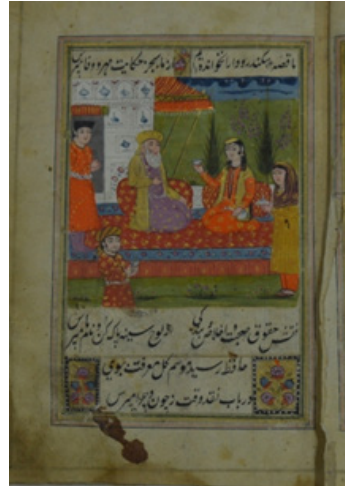 ما قصه سکندر و دارا نخوانده‌ایم از ما بجز حکایت مهر و وفا مپرس
نقش حقوق صحبت و اخلاص و بندگی از لوح سینه پاک کن و نام ما مپرس
حافظ رسید موسم گل معرفت
دریاب نقد وقت ز چون و چرا مپرس